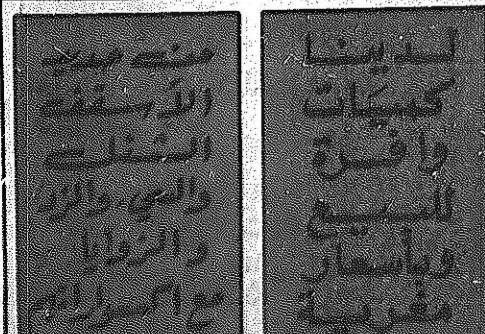 لدينا
كميات
وافرة
للبيع
وبأسعار
مغرية
من حديد
الأسقف
الشنلت
والسي، والزد
والزوايا
مع اكسسواراتهم